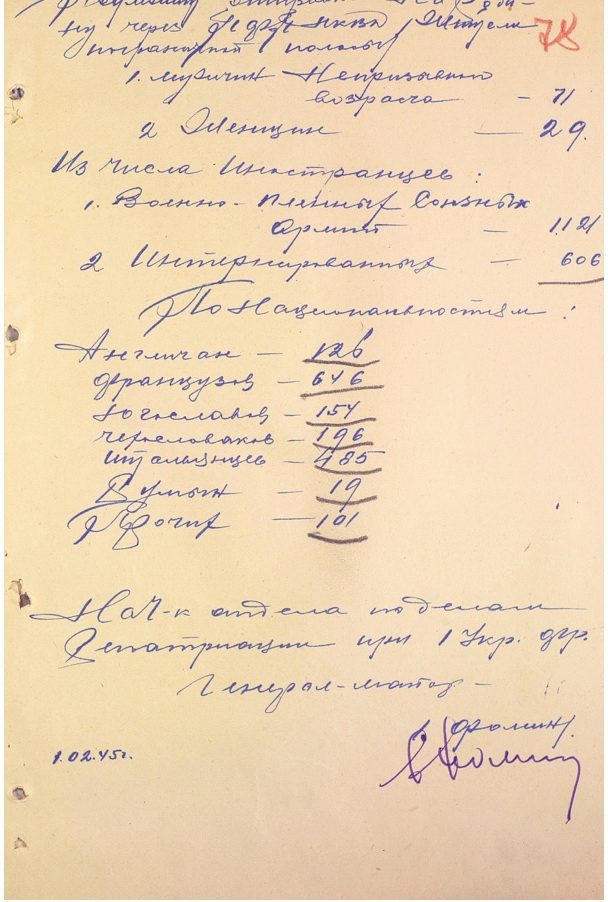 ну через НКВД / Жители
78
пограничной полосы /
1. мужчин Непризывного
возраста — 71
2 Женщин — 29.
Из числа Иностранцев:
1. Военно-пленных Союзных
Армий — 1121
2 Интернированных — 606
По Национальностям:
Англичан — 126
Французов — 646
Югославов — 154
чехословаков — 196
итальянцев — 485
Румын — 19
Прочих — 101
Нач-к отдела по делам
Репатриации при 1 Укр. фр.
Генерал-майор —
/Фомин/.
1.02.45г.